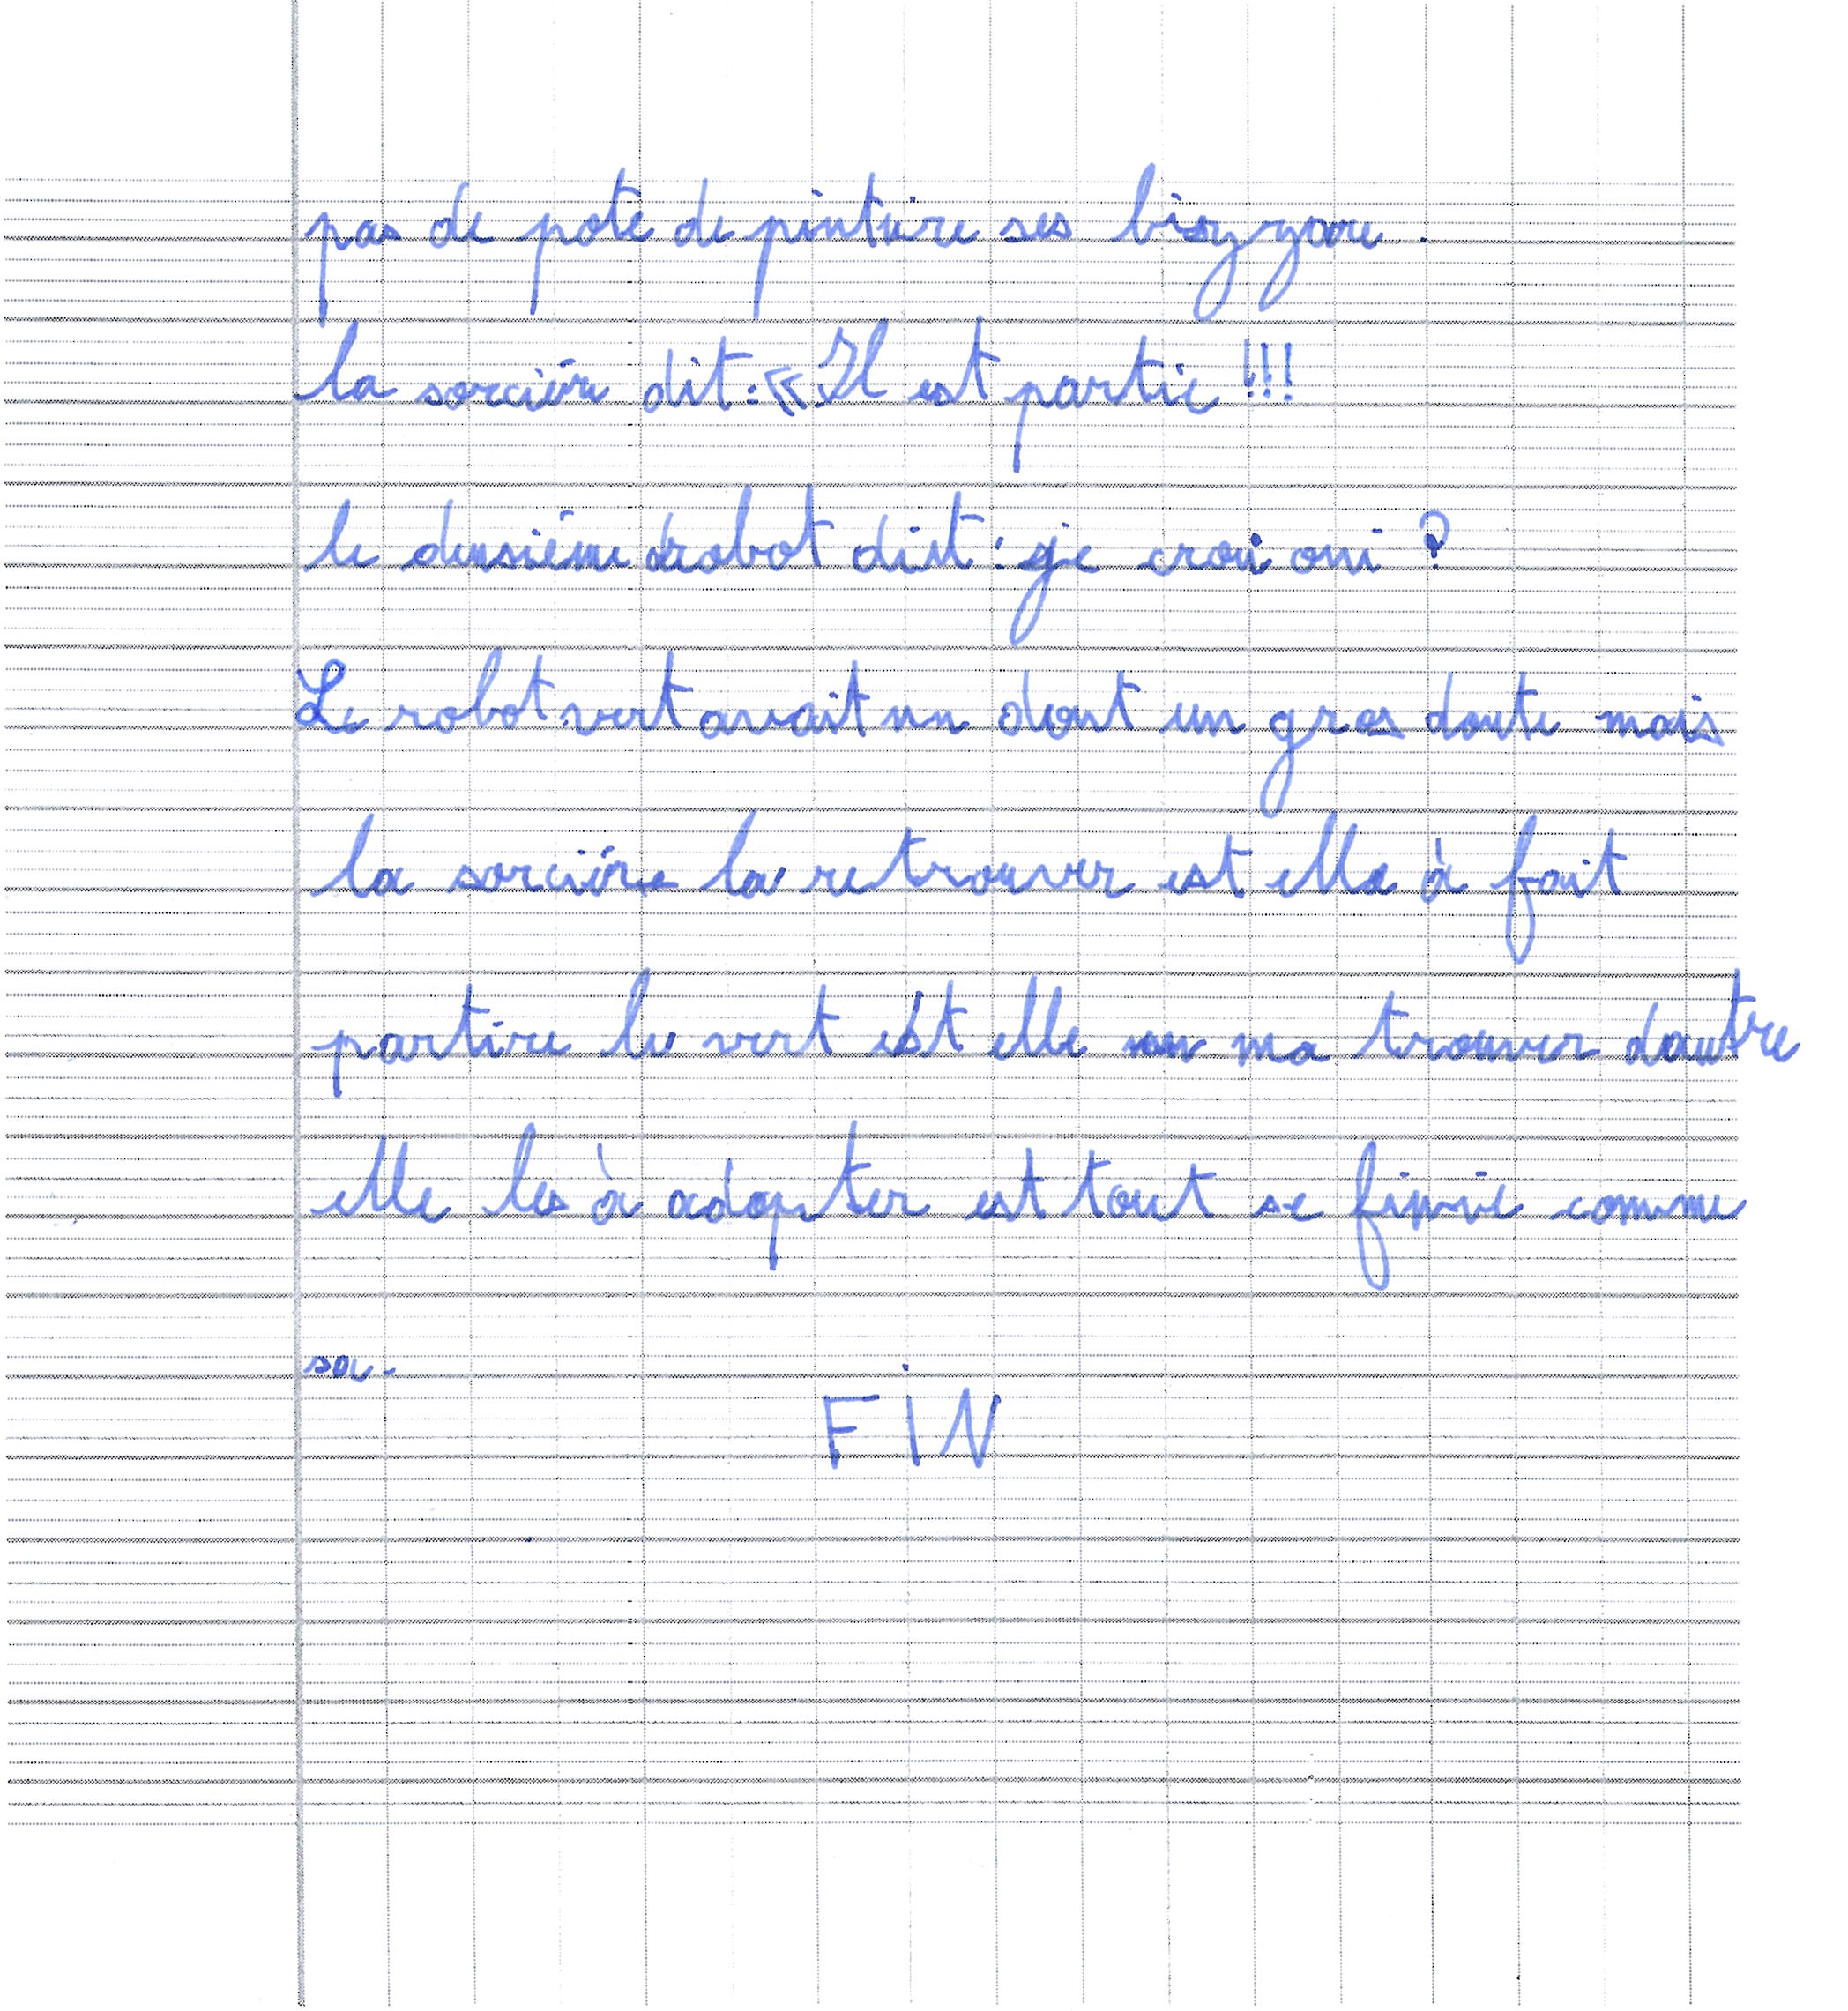 pas de pote de pinture ses bizzare.
la sorciére dit : « Il est partie !!!
le deusiéme robot dit : je croi oui ?
Le robot vert avait un dout un gros doute mais
la sorciére la retrouver est elle à fait
partire le vert est elle en ma trouver dautre
elle les à adopter est tout se finié comme
sa.
FIN